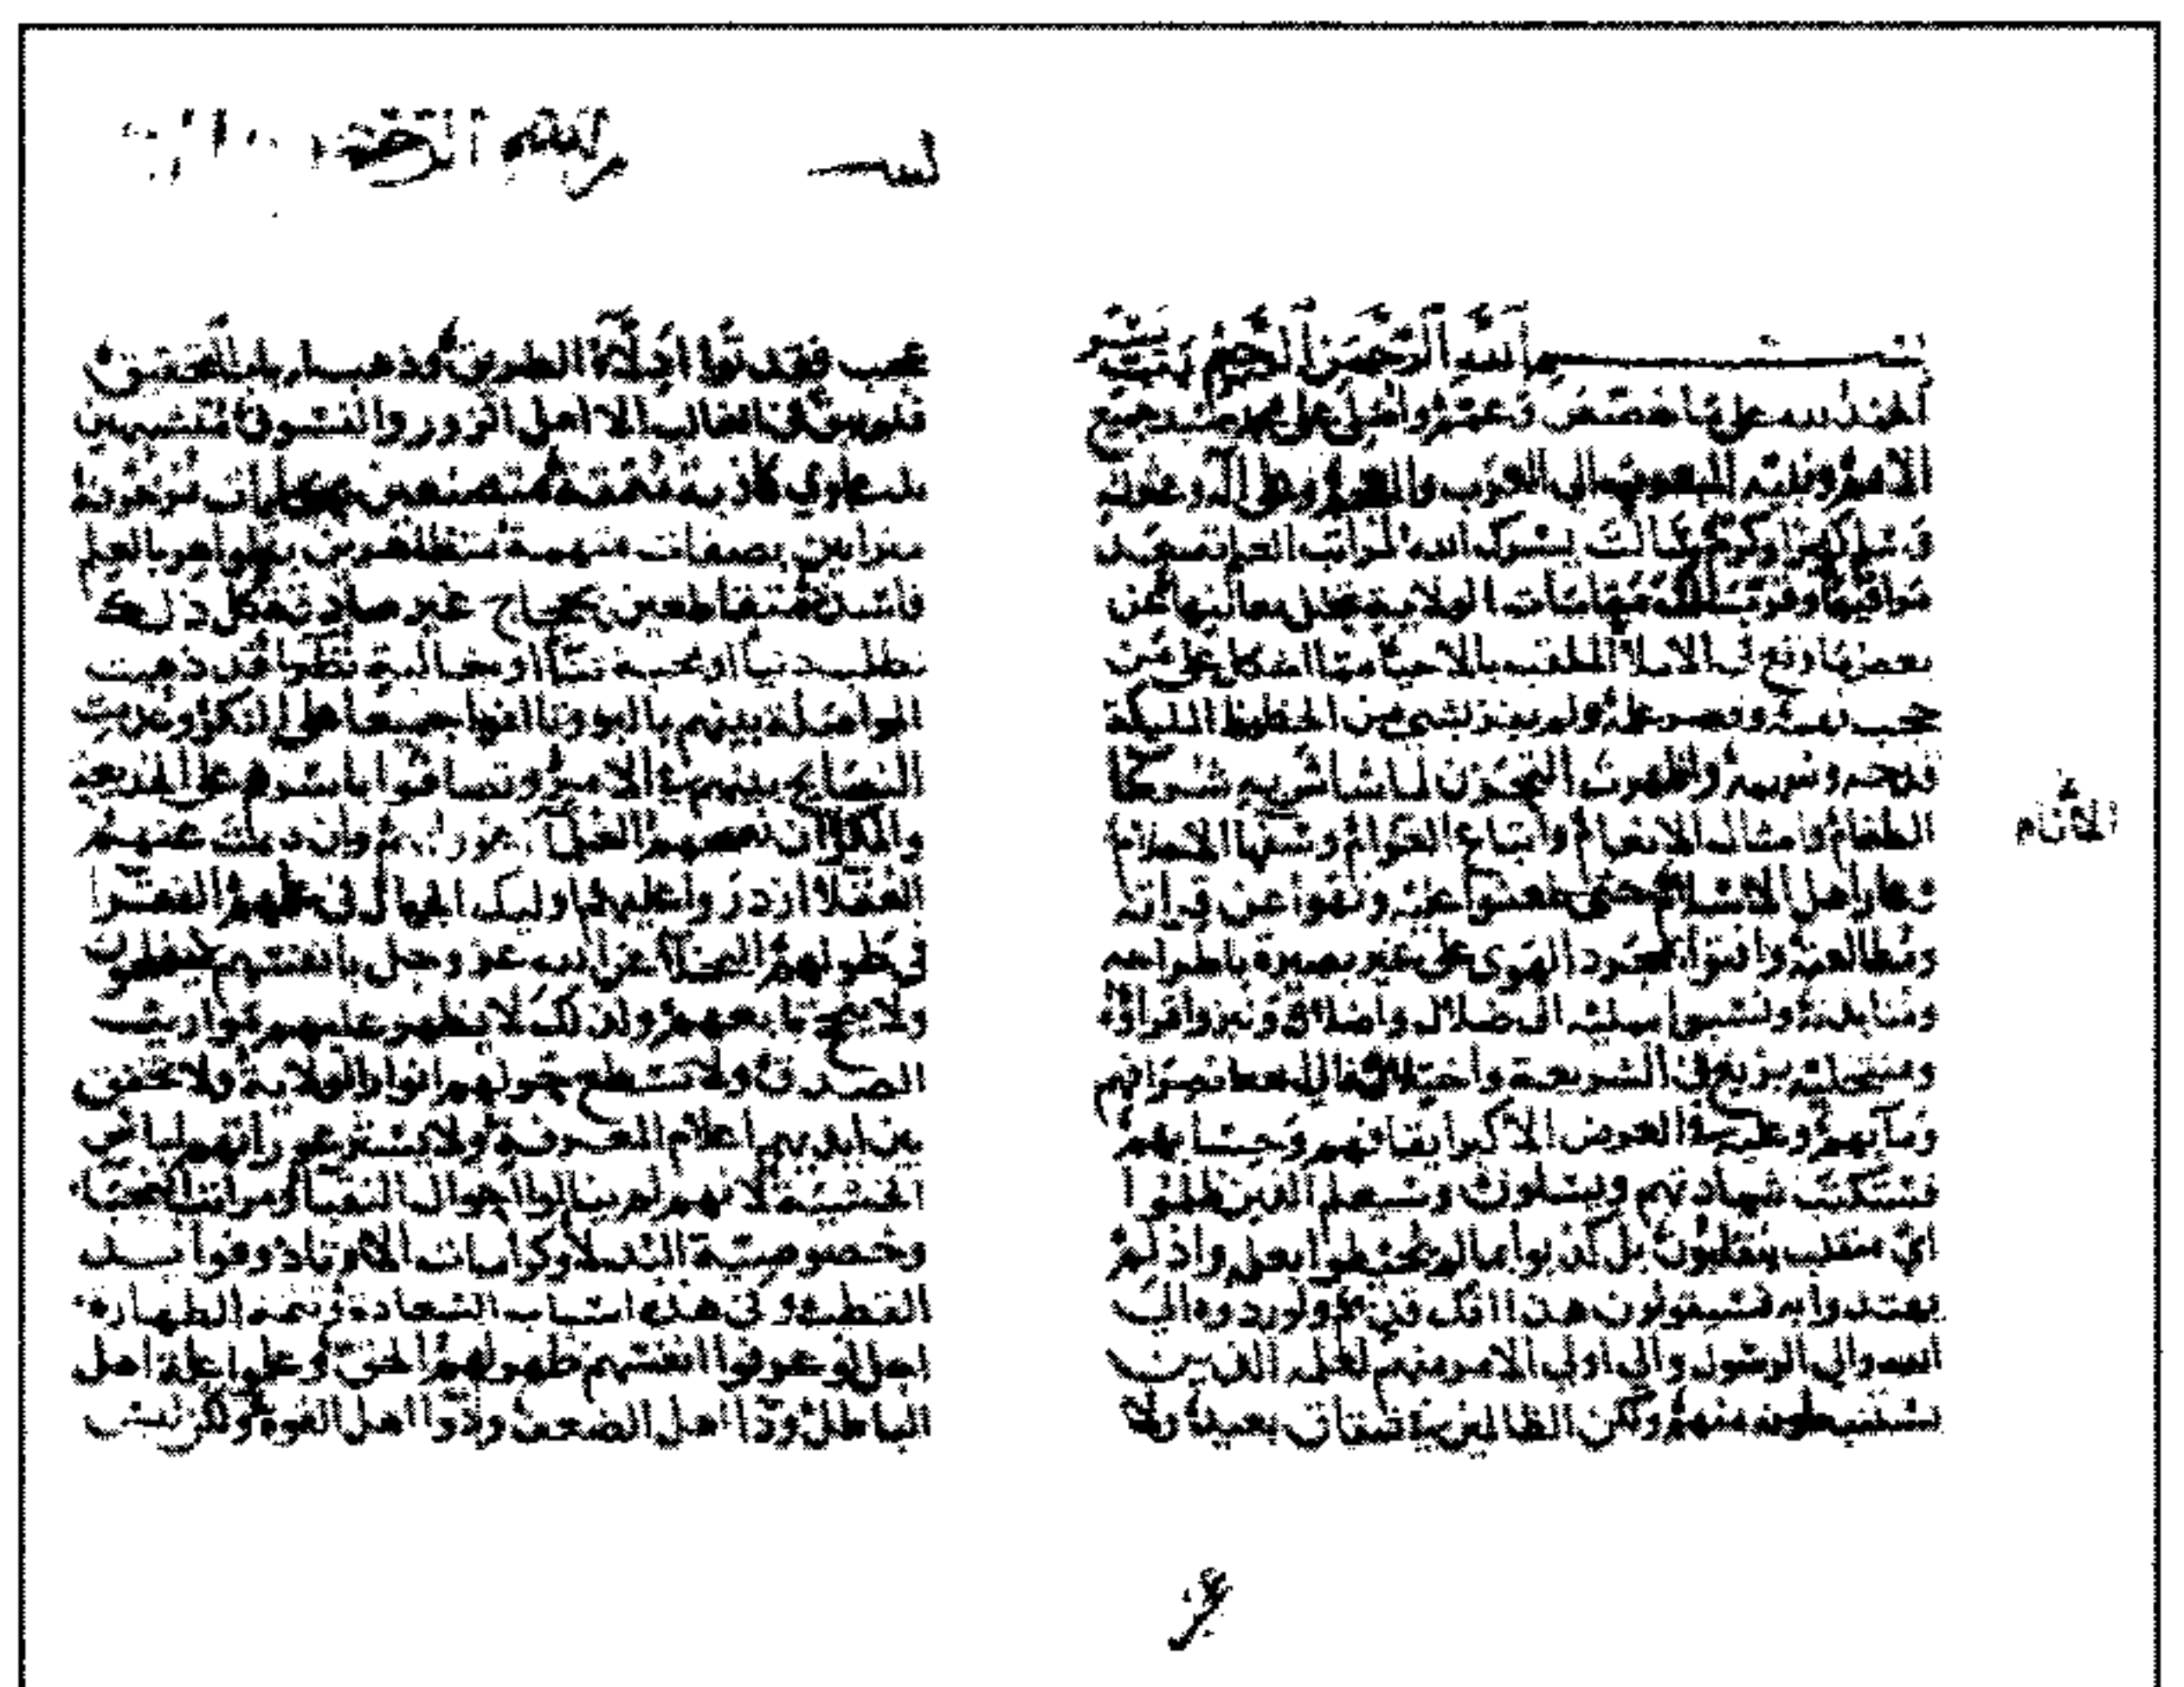 بسم الله الرحمن الرحيم
الحمد لله على ما خصص وعمم وصلى على سيد جميع
الأمم المبعوث إلى العرب والعجم وعلى آله وعترته
وسلم كثيرا وكرم سألت يسرك الله لمراتب العلم تصعد
مراقيها وقرب لك مقامات الولاية تحل معاليها عن
بعض ما وقع في الاملاء الملقب بالاحياء مما اشكل على من
حجب فهمه وقصر علمه ولم يفز بشي من الحظوظ الملكية
قدحه وسهمه واظهرت التحزن لما شاش به شركا
الطغام وامثال الانعام واتباع العوام وسفها الاحلام
وعار اهل الاسلام حتى طعنوا عليه ونهوا عن قراءته
ومطالعته وافتوا بمجرد الهوى على غير بصيرة باطراحه
ومنابذته ونسبوا ممليه الى ضلال واضلال ونبزوا قراءه
ومنتحليه بزيغ في الشريعة واختلال فالى الله انصرافهم
ومآبهم وعليه في العرض الاكبر ايقافهم وحسابهم
فستكتب شهادتهم ويسئلون وسيعلم الذين ظلموا
اي منقلب ينقلبون بل كذبوا بما لم يحيطوا بعلمه واذ لم
يهتدوا به فسيقولون هذا افك قديم ولو ردوه الى
الله والى الرسول والى اولى الامر منهم لعلمه الذين
يستنبطونه منهم ولكن الظالمين في شقاق بعيد ولا
الأنام
عجب فقد ثوا ادلاء الطريق وذهب ارباب التحقيق
فلم يبق في الغالب الا اهل الزور والفسوق متشبهين
بدعاوي كاذبة متصفين بحكايات موضوعة
متزينين بصفات منمقة متظاهرين بظواهر من العلم
فاسدة متقاطعين بحجاج غير صادقة كل ذلك
لطلب دنيا او محبة ثنا او مغالبة نظرا قد ذهبت
المواصلة بينهم بالبر وتالفوا جميعا على المنكر وعدمت
النصائح بينهم في الامر وتصافوا باسرهم على الخديعة
والمكر ان نصحهم العلما اغروا بهم وان صمت عنهم
العقلا ازدروا عليهم اوليك الجهال في علمهم الفقرا
في طولهم البخلا عن الله عز وجل بانفسهم لا يفلحون
ولا ينجح تابعهم ولذلك لا يظهر عليهم مواريث
الصدق ولا تسطع حولهم انوار الولاية ولا تحقق
بين ايديهم اعلام المعرفة ولا يستر عوراتهم لباس
الخشية لانهم لم ينالوا احوال النقبا ومراتب النجبا
وخصوصية البدلا وكرامات الاوتاد وفوائد
القطب وفي هذه اسباب السعادة وتتمة الطهارة
اجل لو عرفوا انفسهم ظهر لهم الحق وعلموا علة اهل
الباطل ودا اهل الضعف ودوا اهل القوة ولكن ليس
بسم الله الرحمن